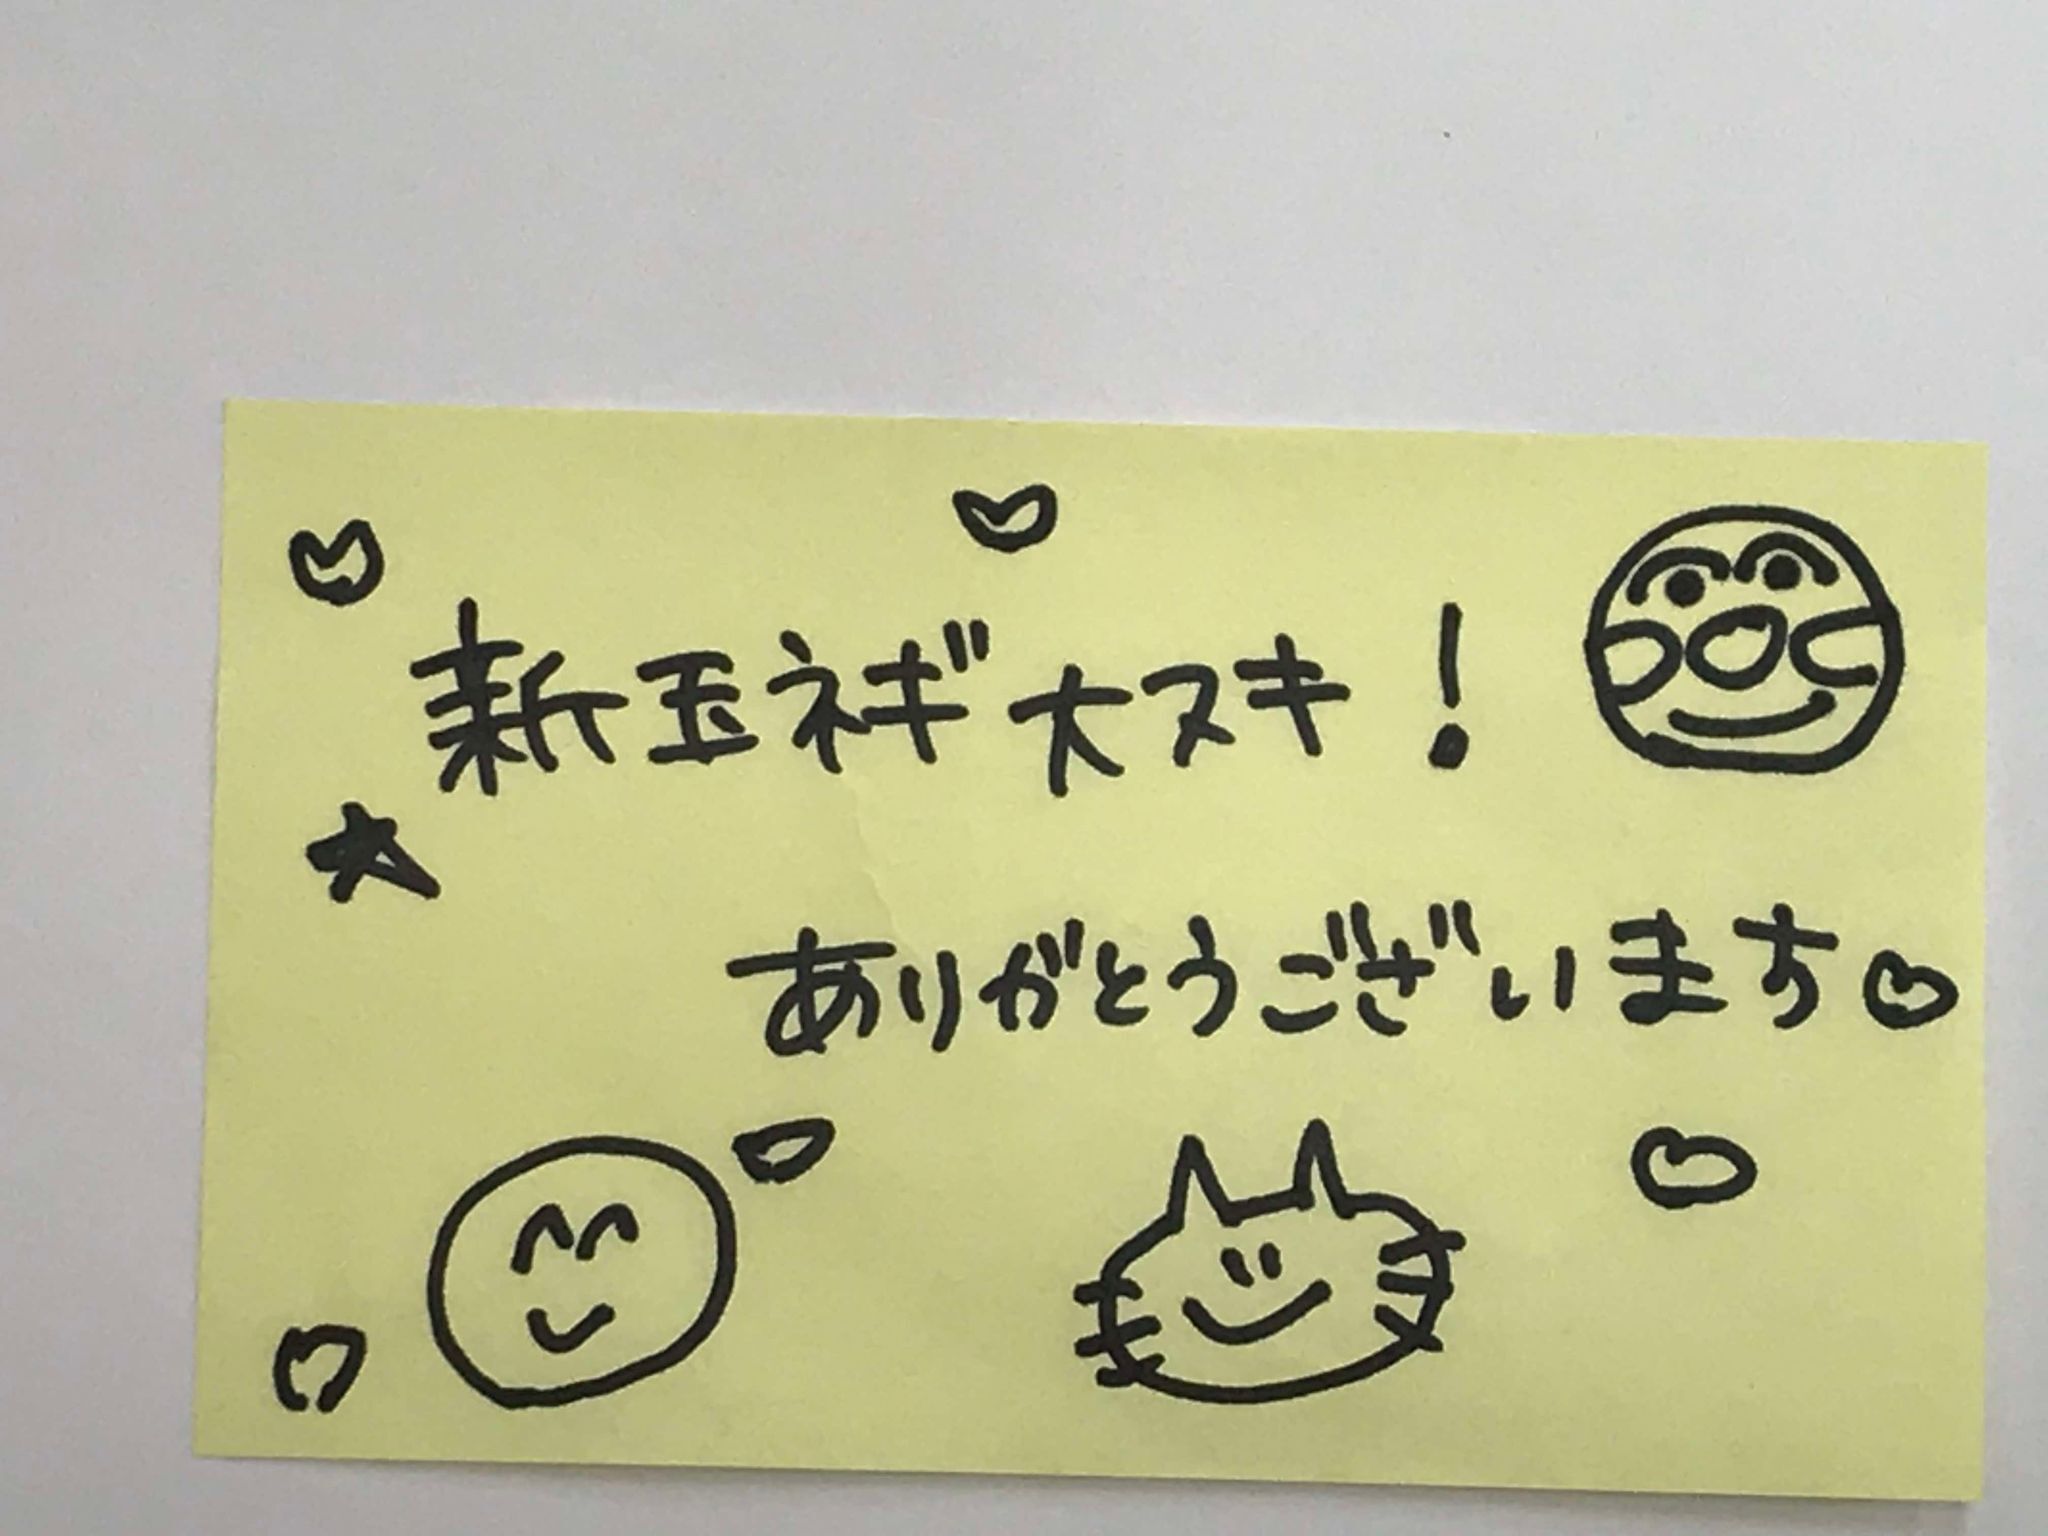 新玉ネギ大スキ!
ありがとうございます♡